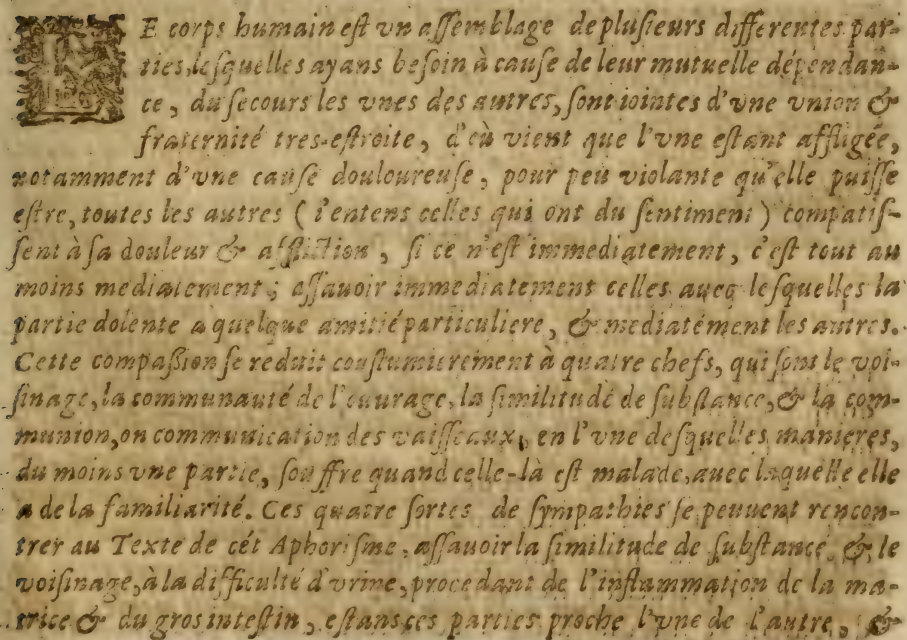 LE corps humain eſt vn aſſemblage de pluſieurs differentes par-
ties, leſquelles ayans beſoin à cauſe de leur mutuelle dépendan-
ce, du ſecours les vnes des autres, ſont iointes d'vne vnion &
fraternité tres-eſtroite, d'où vient que l'vne eſtant affligée,
notamment d'vne cauſe douloureuſe, pour peu violante qu'elle puiſſe
eſtre, toutes les autres (i'entens celles qui ont du ſentiment) compatiſ-
ſent à ſa douleur & affliction, ſi ce n'eſt immediatement, c'eſt tout au
moins mediatement; aſſauoir immediatement celles auec leſquelles la
partie dolente a quelque amitié particuliere, & mediatément les autres.
Cette compaſſion ſe reduit couſtumierement à quatre chefs, qui ſont le voi-
ſinage, la communauté de l'ouurage, la ſimilitude de ſubſtance, & la com-
munion, ou communication des vaiſſeaux, en l'vne deſquelles manieres,
du moins vne partie, ſouffre quand celle-là eſt malade, auec laquelle elle
a de la familiarité. Ces quatre ſortes de ſympathies ſe peuuent rencon-
trer au Texte de cét Aphoriſme, aſſauoir la ſimilitude de ſubſtance & le
voiſinage, à la difficulté d'vrine, procedant de l'inflammation de la ma-
trice & du gros inteſtin, eſtans ces parties proche l'vne de l'autre, &